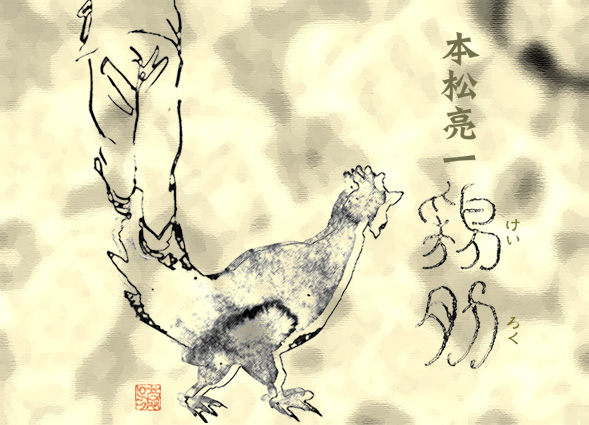 本松亮一
鶏肋
けい
ろく